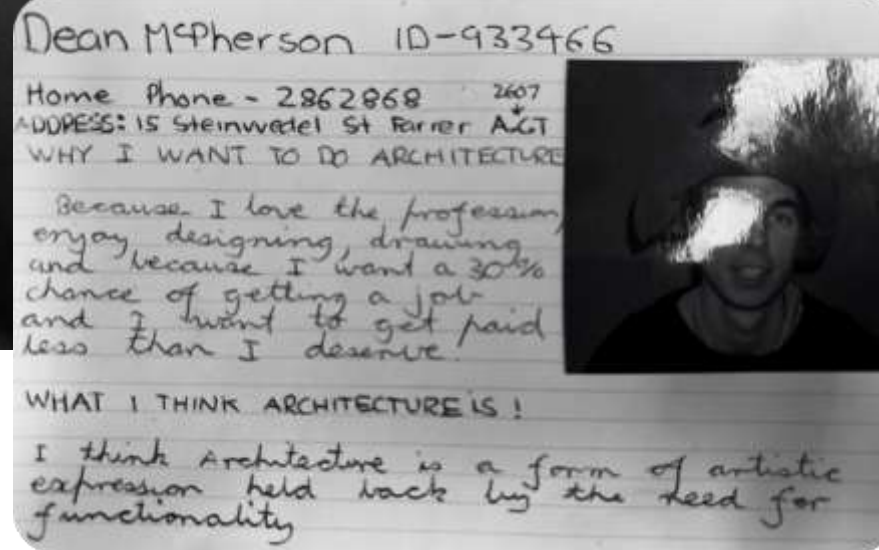 Dean McPherson ID-933466
Home Phone - 2862868 2607
ADDRESS: 15 Steinwedel St Farrer ACT
WHY I WANT TO DO ARCHITECTURE
Because I love the profession,
enjoy designing, drawing
and because I want a 30%
chance of getting a job
and I want to get paid
less than I deserve.
WHAT I THINK ARCHITECTURE IS!
I think Architecture is a form of artistic
expression held back by the need for
functionality